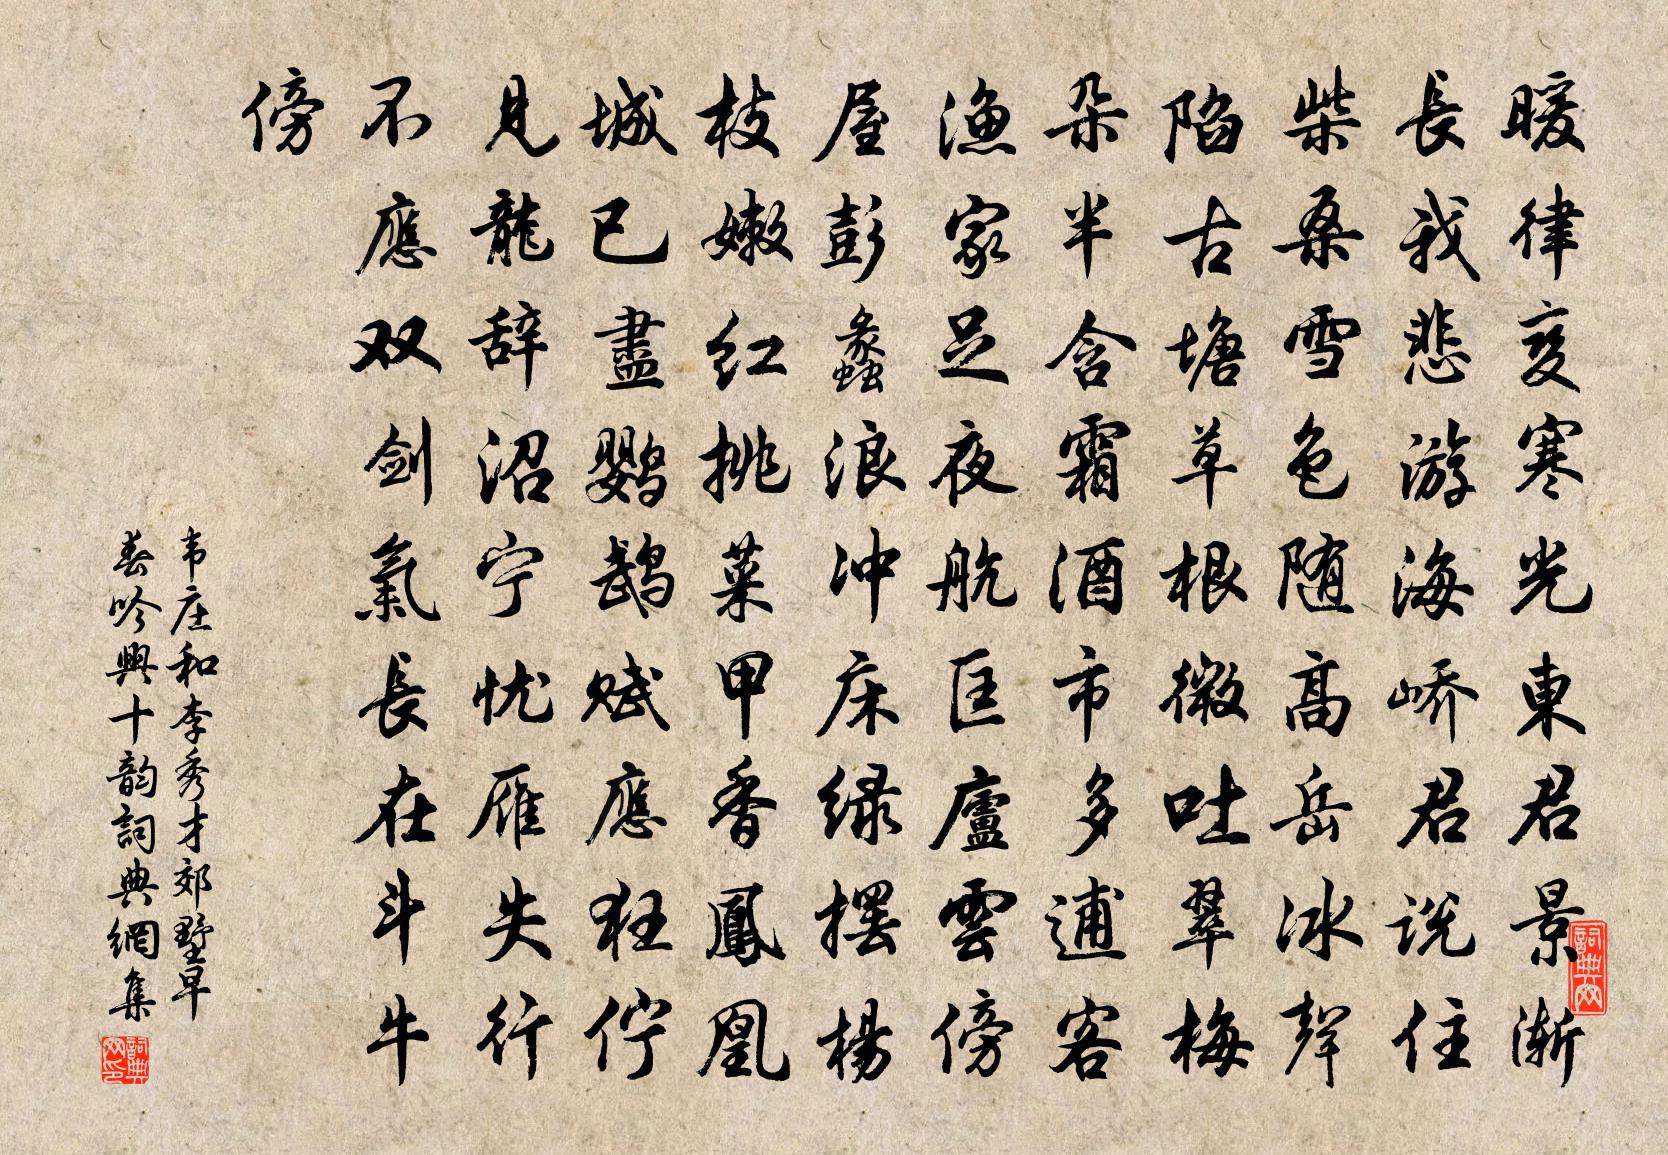 暖律变寒光東君景渐
長我悲游海峤君说住
柴桑雪色随高岳冰聲
陷古塘草根微吐翠梅
朵半含霜酒市多逋客
漁家足夜航匡廬雲傍
屋彭蠡浪冲床绿摆楊
枝嫩红挑菜甲香鳳凰
城已盡鹦鹉赋應狂佇
見龍辞沼宁忧雁失行
不應双剑氣長在斗牛
傍
韦庄和李秀才郊墅早
春吟興十韵詞典網集
詞典网
詞典网印